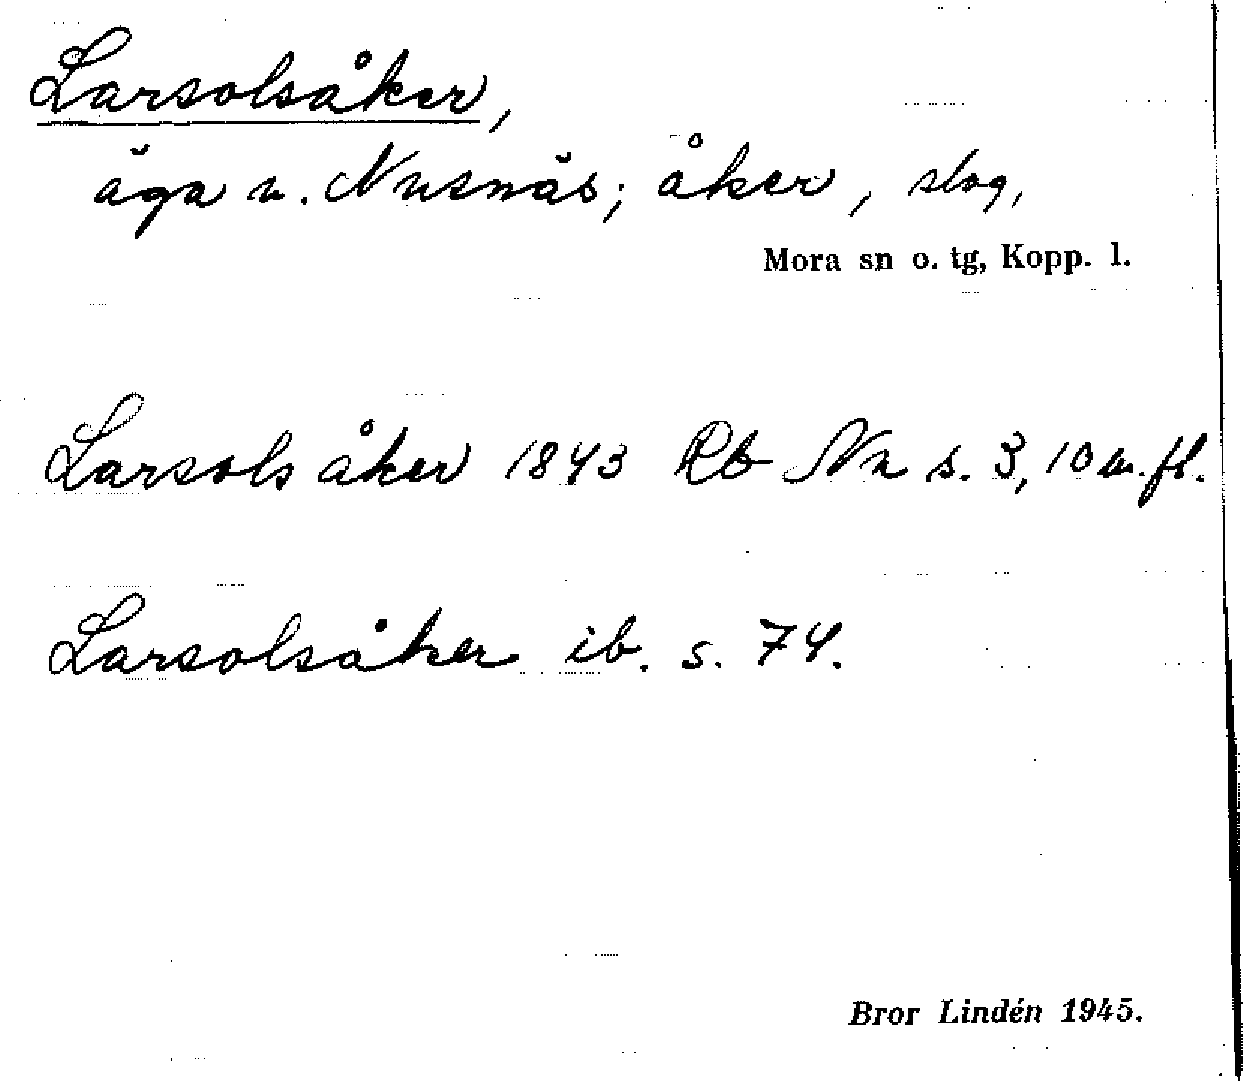 Larsolsåker,
äga u. Nusnäs; åker, slog,
Mora sn o. tg, Kopp. l.
Larsols åker 1843 Rb Nn s. 3, 10 m. fl.
Larsolsåker ib. s. 74.
Bror Lindén 1945.